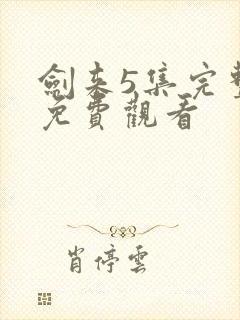 劍来5集完整
免費觀看
肖停雲